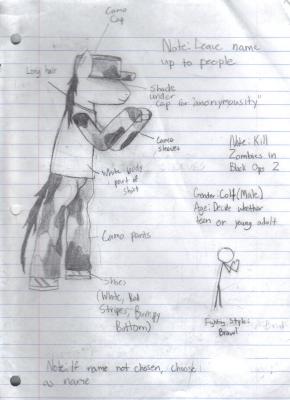 Camo
Cap
Note: Leave name
up to people
Long hair
Shade
under
cap for "anonymousity"
Camo
sleeves
Note: Kill
Zombies in
Black Ops 2
White body
part of
shirt
Gender: Colt (Male)
Age: Decide whether
teen or young adult
Camo pants
Shoes
(White, Red
Stripes, Bumpy
Bottom)
Fighting Style:
Brawl
Note: If name not chosen, choose
as name